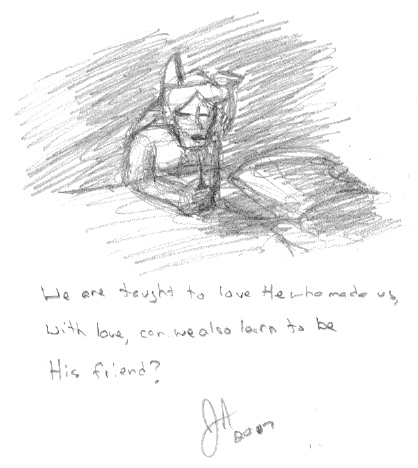 We are taught to love He who made us,
with love, can we also learn to be
His friend?
JA
2007